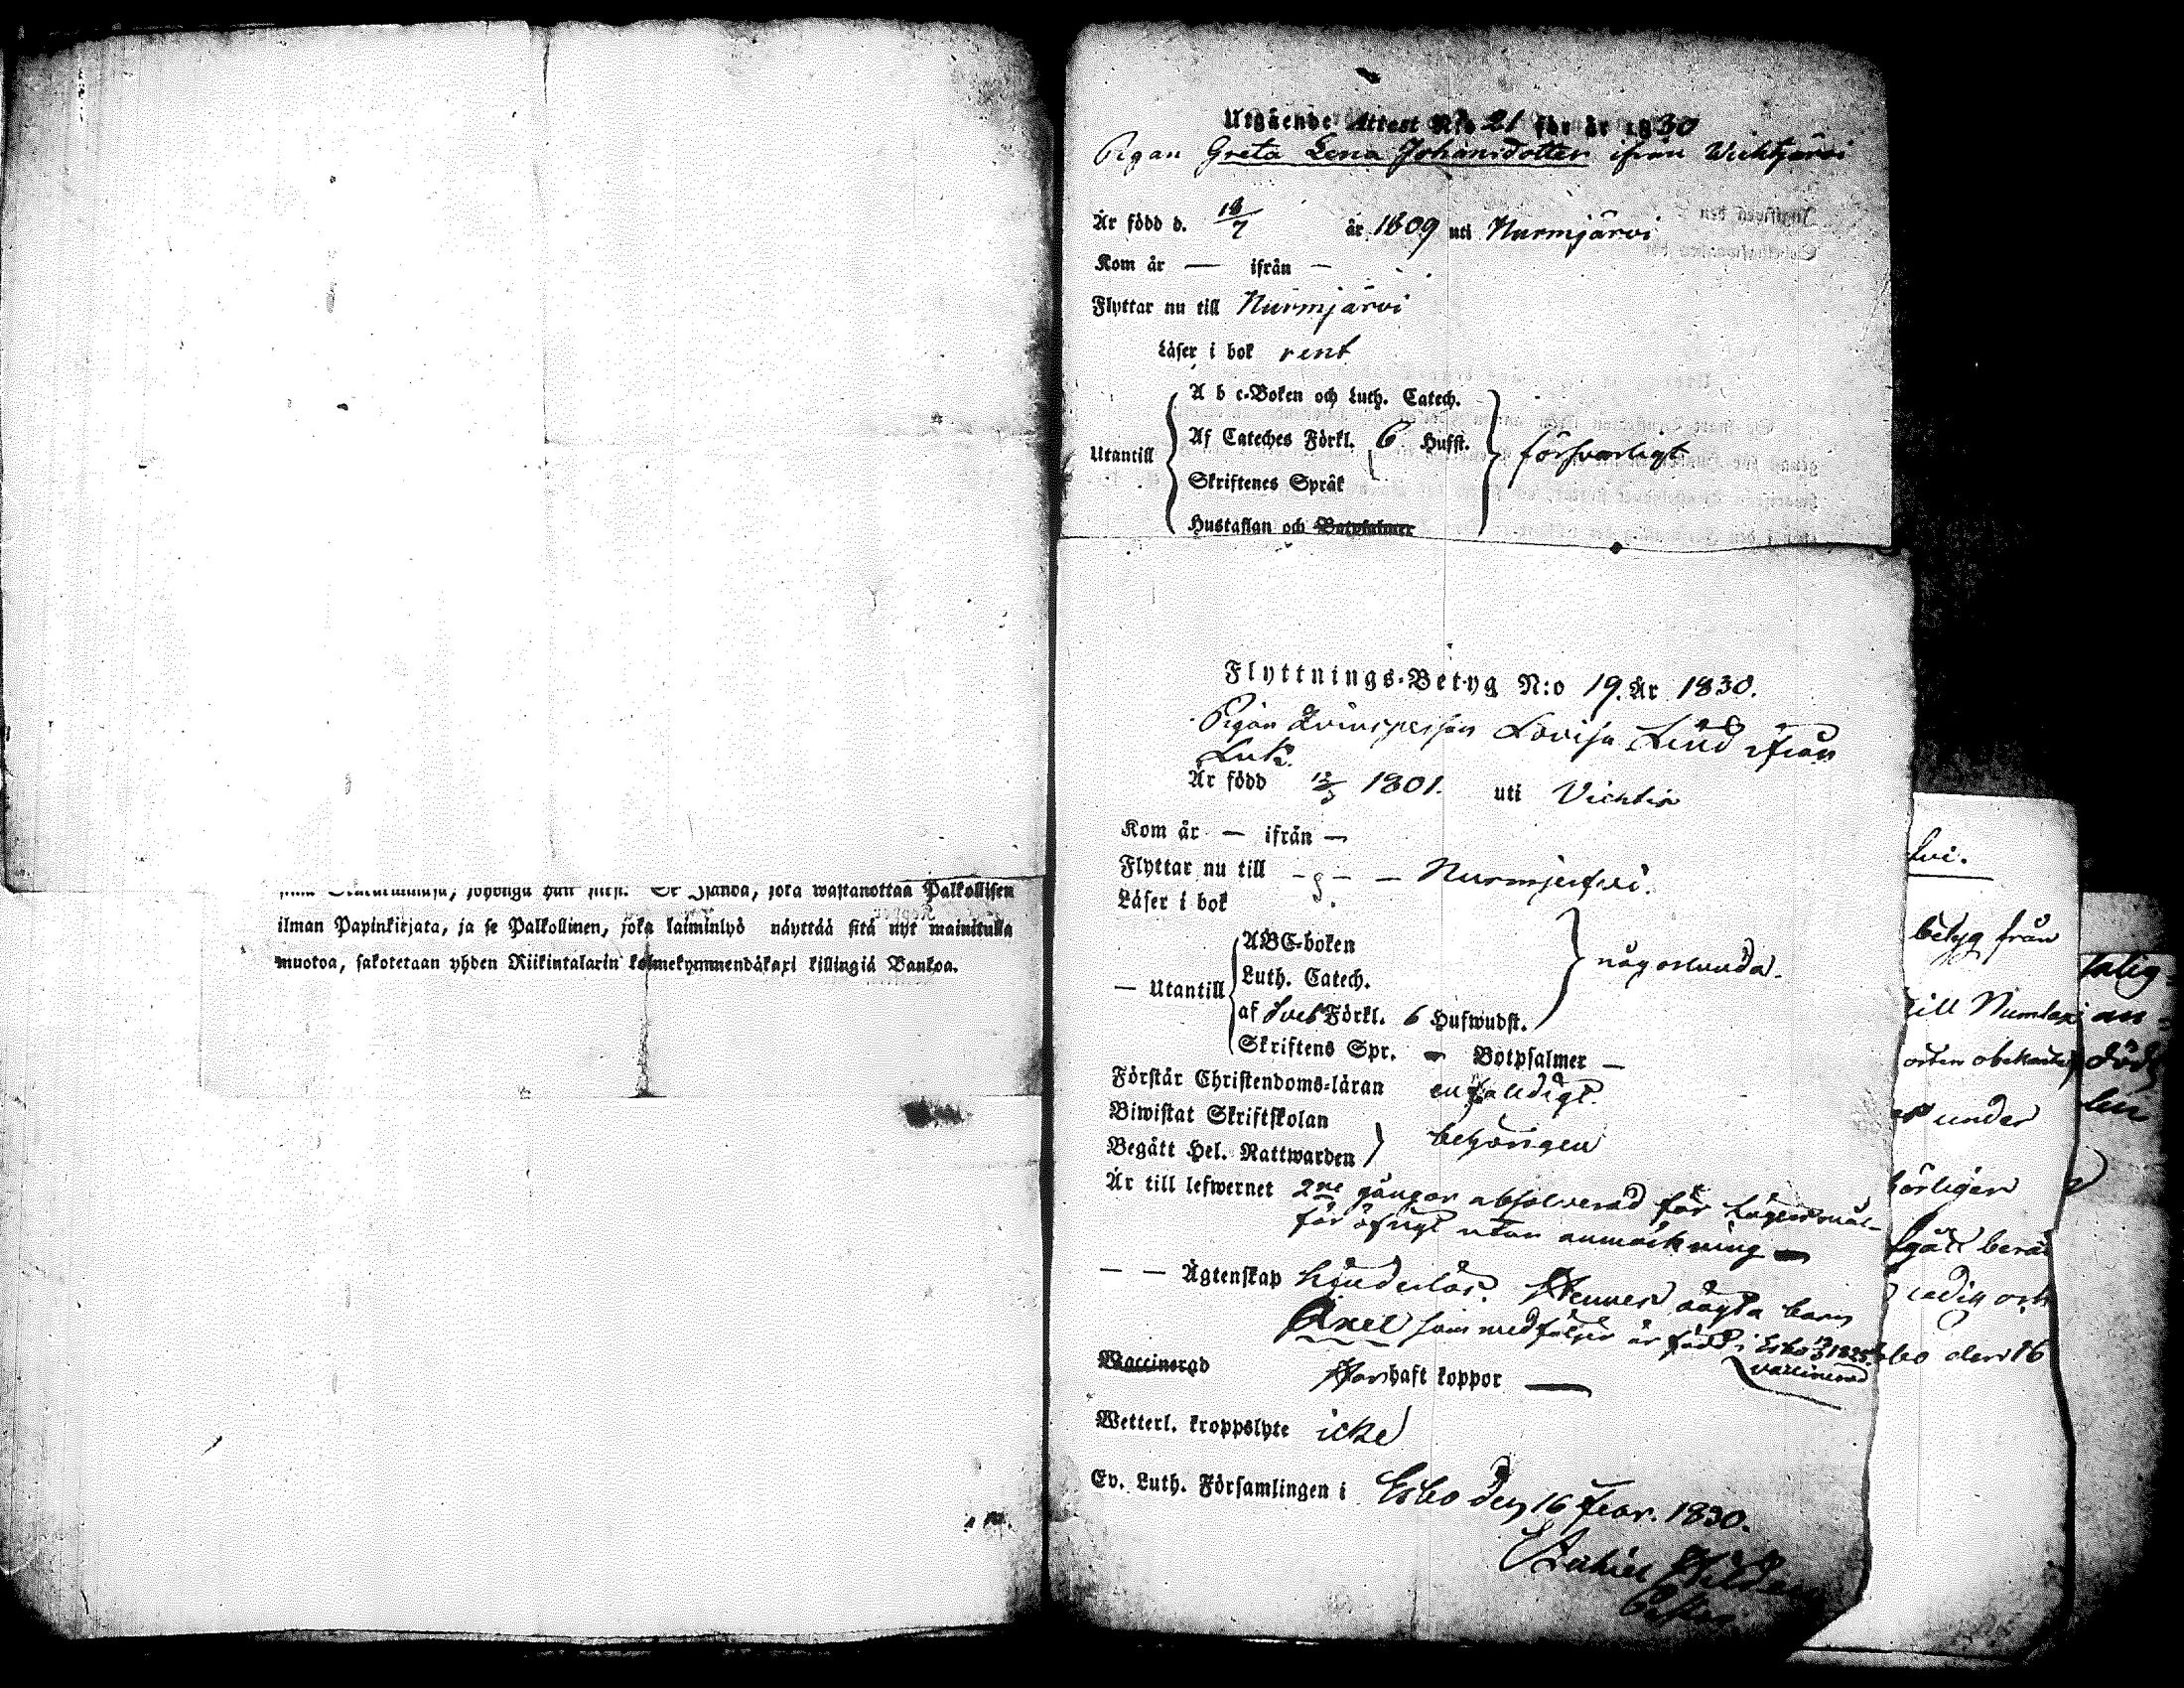 ilman Papinkirjata, ja se Palkollinen, joka laiminlyö näyttää sitä nyt mainitulla
muotoa, sakotetaan yhden Riikintalarin kolmekymmendäkaxi killingiä Bankoa.
Utgående Attest N:o 21 för år 1830
Pigan Greta Lena Johansdotter ifrån Wichtjärvi
Är född d. 18/7 år 1809 uti Nurmjärvi
Kom år — ifrån —
Flyttar nu till Nurmjärvi
Läser i bok rent
Utantill
A b c-Boken och Luth. Catech.
Af Cateches Förkl. 6 Hufst.
Skriftenes Språk
Hustaflan och Botpsalmer
försvarligt
Flyttnings-Betyg N:o 19. År 1830.
Pigan Lovisa Lind ifrån
Är född 1801. uti Vichtis
Kom år — ifrån —
Flyttar nu till — Nurmjerfvi.
Läser i bok
— Utantill
ABC-boken
Luth. Catech.
af Förkl. 6 Hufwudst.
Skriftens Spr. — Botpsalmer —
någorlunda.
Förstår Christendoms-läran enfaldigt.
Biwistat Skriftskolan
Begått Hel. Nattwarden
behörigen
Är till lefwernet 2ne gångor absolverad för Lägersmål
för öfrigt utan anmärkning —
— — Ägtenskap hinderlös. Hennes oägta barn
Axel som medföljer är född i Esbo 1825.
vaccinerad
Waccinerad Har haft koppor —
Wetterl. kroppslyte icke
Ev. Luth. Församlingen i Esbo den 16 Febr. 1830.
betyg från
till Numlax
orten obekant
under
den 16